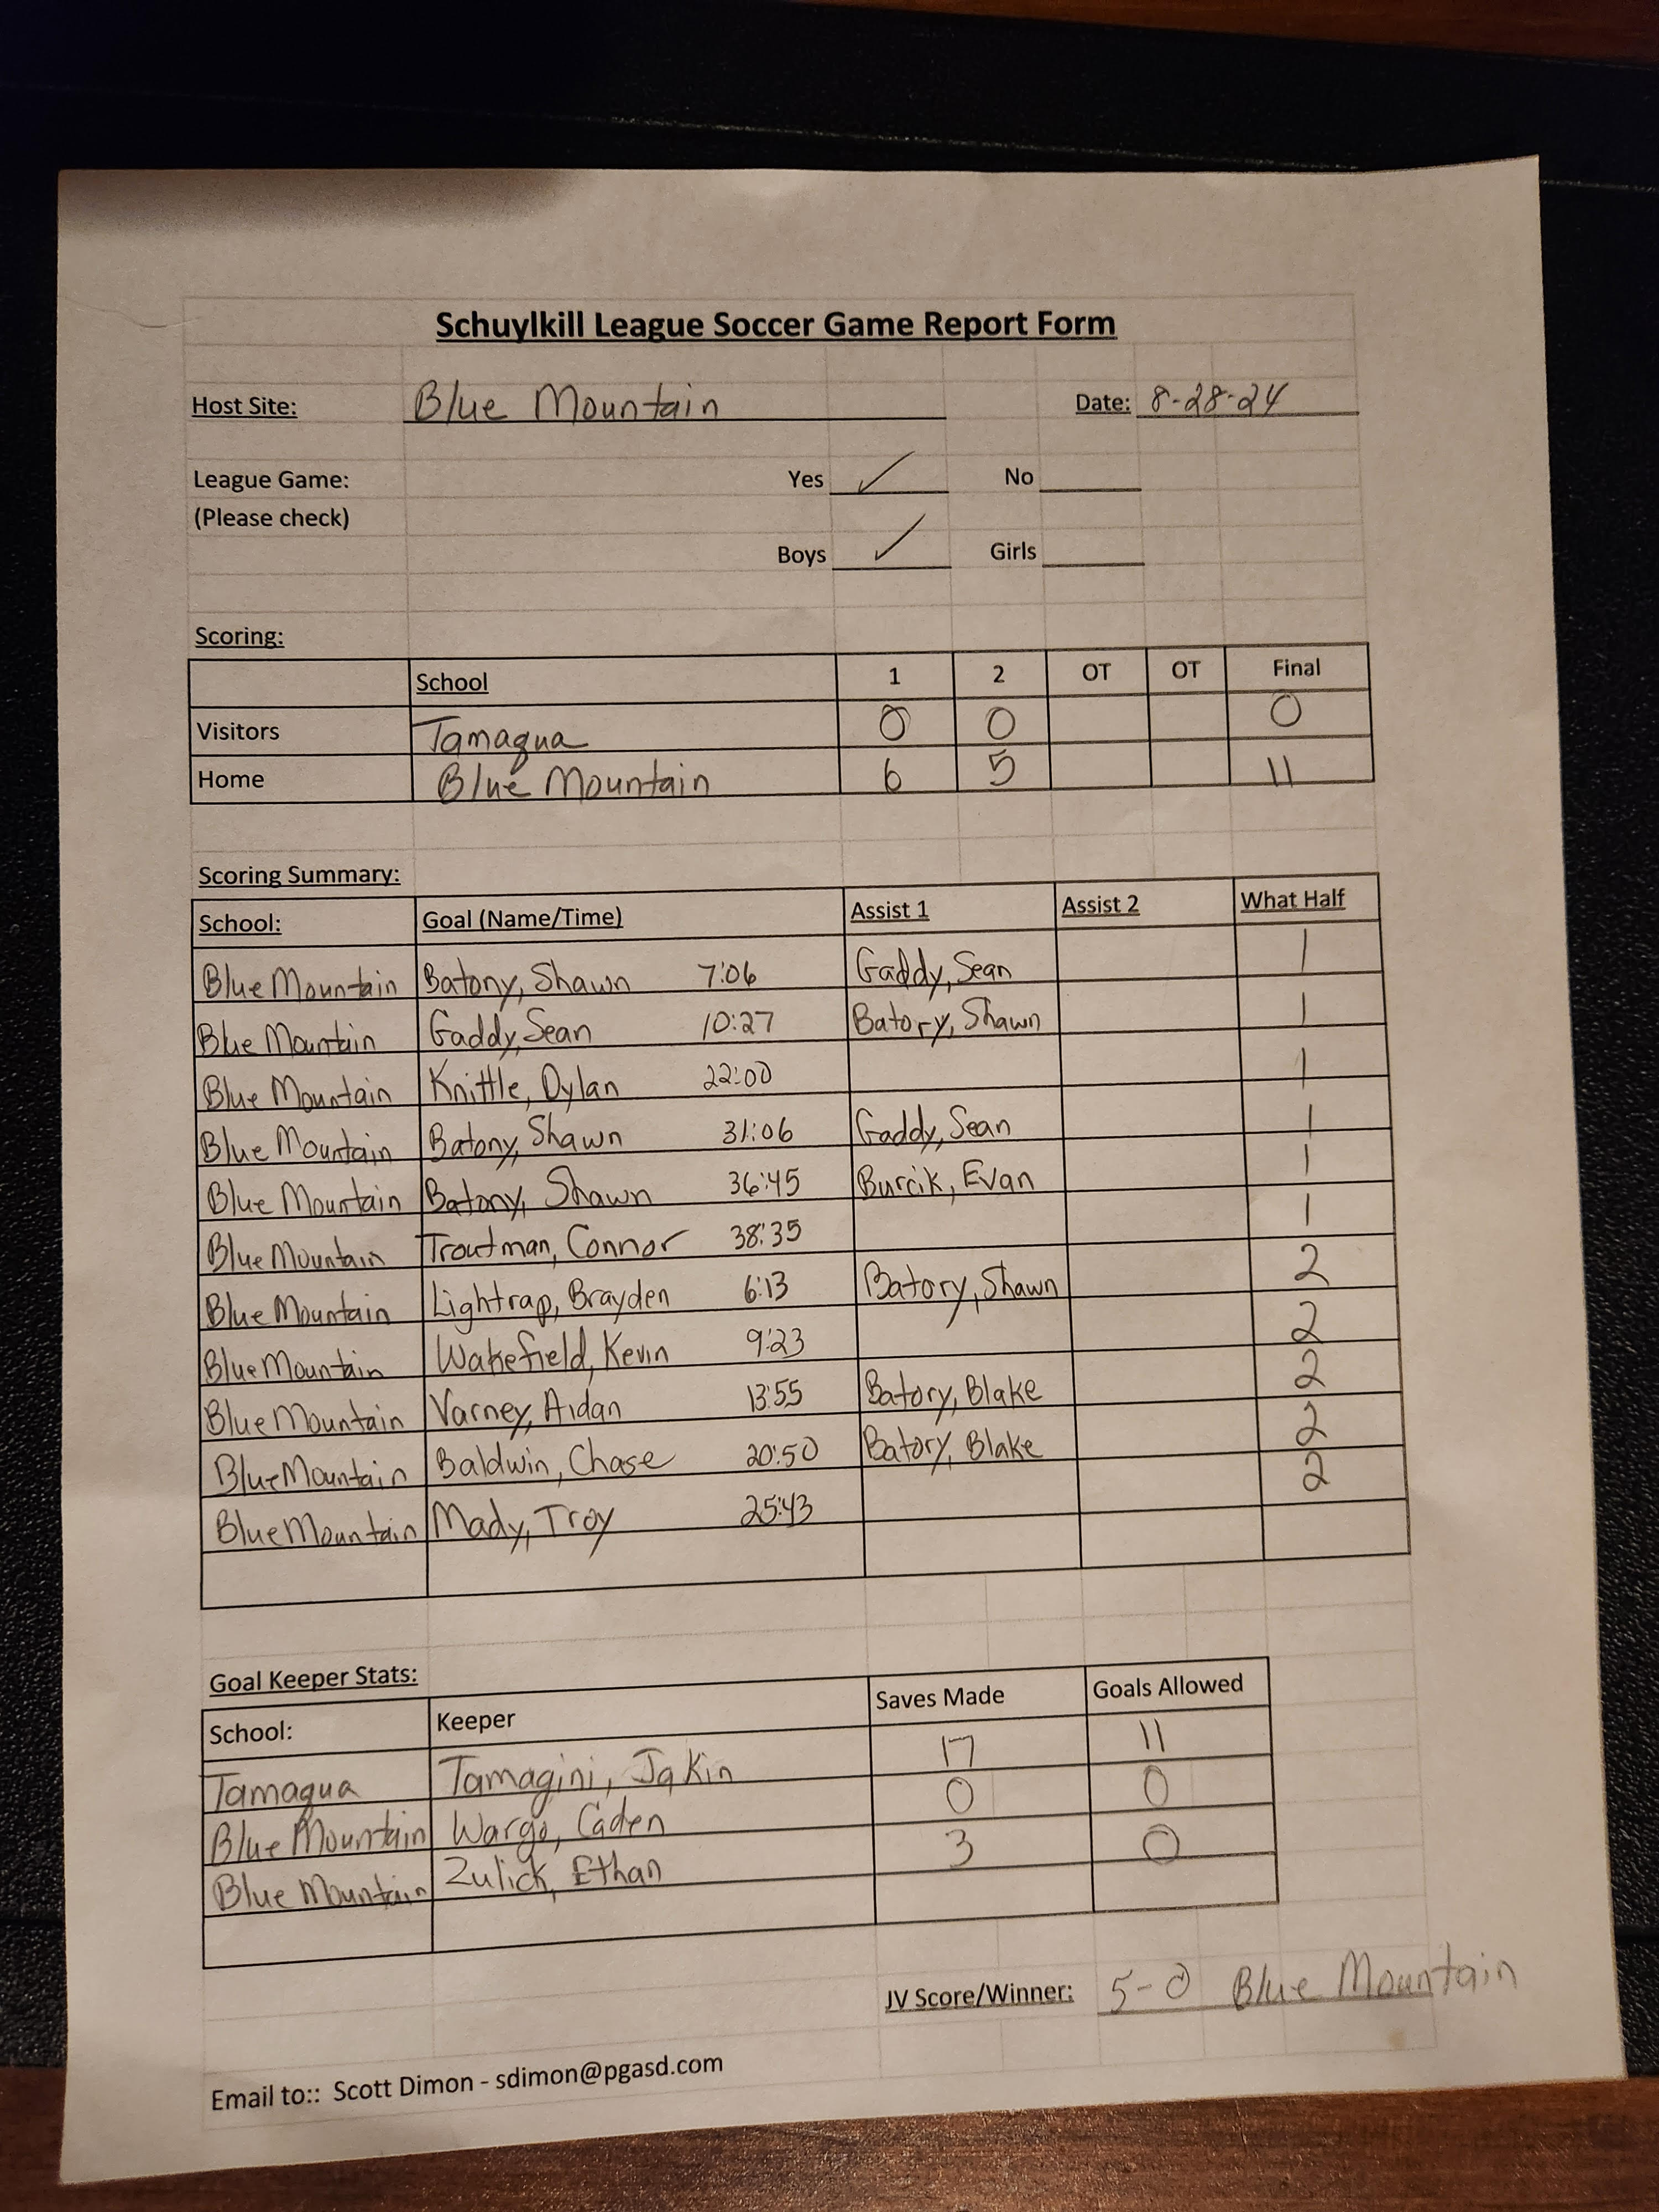 Schuylkill League Soccer Game Report Form
Host Site: Blue Mountain Date: 8-28-24
League Game: Yes ✓ No
(Please check)
Boys ✓ Girls
Scoring:
School 1 2 OT OT Final
Visitors Tamaqua 0 0 0
Home Blue Mountain 6 5 11
Scoring Summary:
School: Goal (Name/Time) Assist 1 Assist 2 What Half
Blue Mountain Batory, Shawn 7:06 Gaddy, Sean 1
Blue Mountain Gaddy, Sean 10:27 Batory, Shawn 1
Blue Mountain Knittle, Dylan 22:00 1
Blue Mountain Batory, Shawn 31:06 Gaddy, Sean 1
Blue Mountain Batory, Shawn 36:45 Burcik, Evan 1
Blue Mountain Troutman, Connor 38:35 1
Blue Mountain Lightrap, Brayden 6:13 Batory, Shawn 2
Blue Mountain Wakefield, Kevin 9:23 2
Blue Mountain Varney, Aidan 13:55 Batory, Blake 2
Blue Mountain Baldwin, Chase 20:50 Batory, Blake 2
Blue Mountain Mady, Troy 25:43 2
Goal Keeper Stats:
School: Keeper Saves Made Goals Allowed
Tamaqua Tamagini, Jakin 17 11
Blue Mountain Wargo, Caden 0 0
Blue Mountain Zulick, Ethan 3 0
JV Score/Winner: 5-0 Blue Mountain
Email to:: Scott Dimon - sdimon@pgasd.com